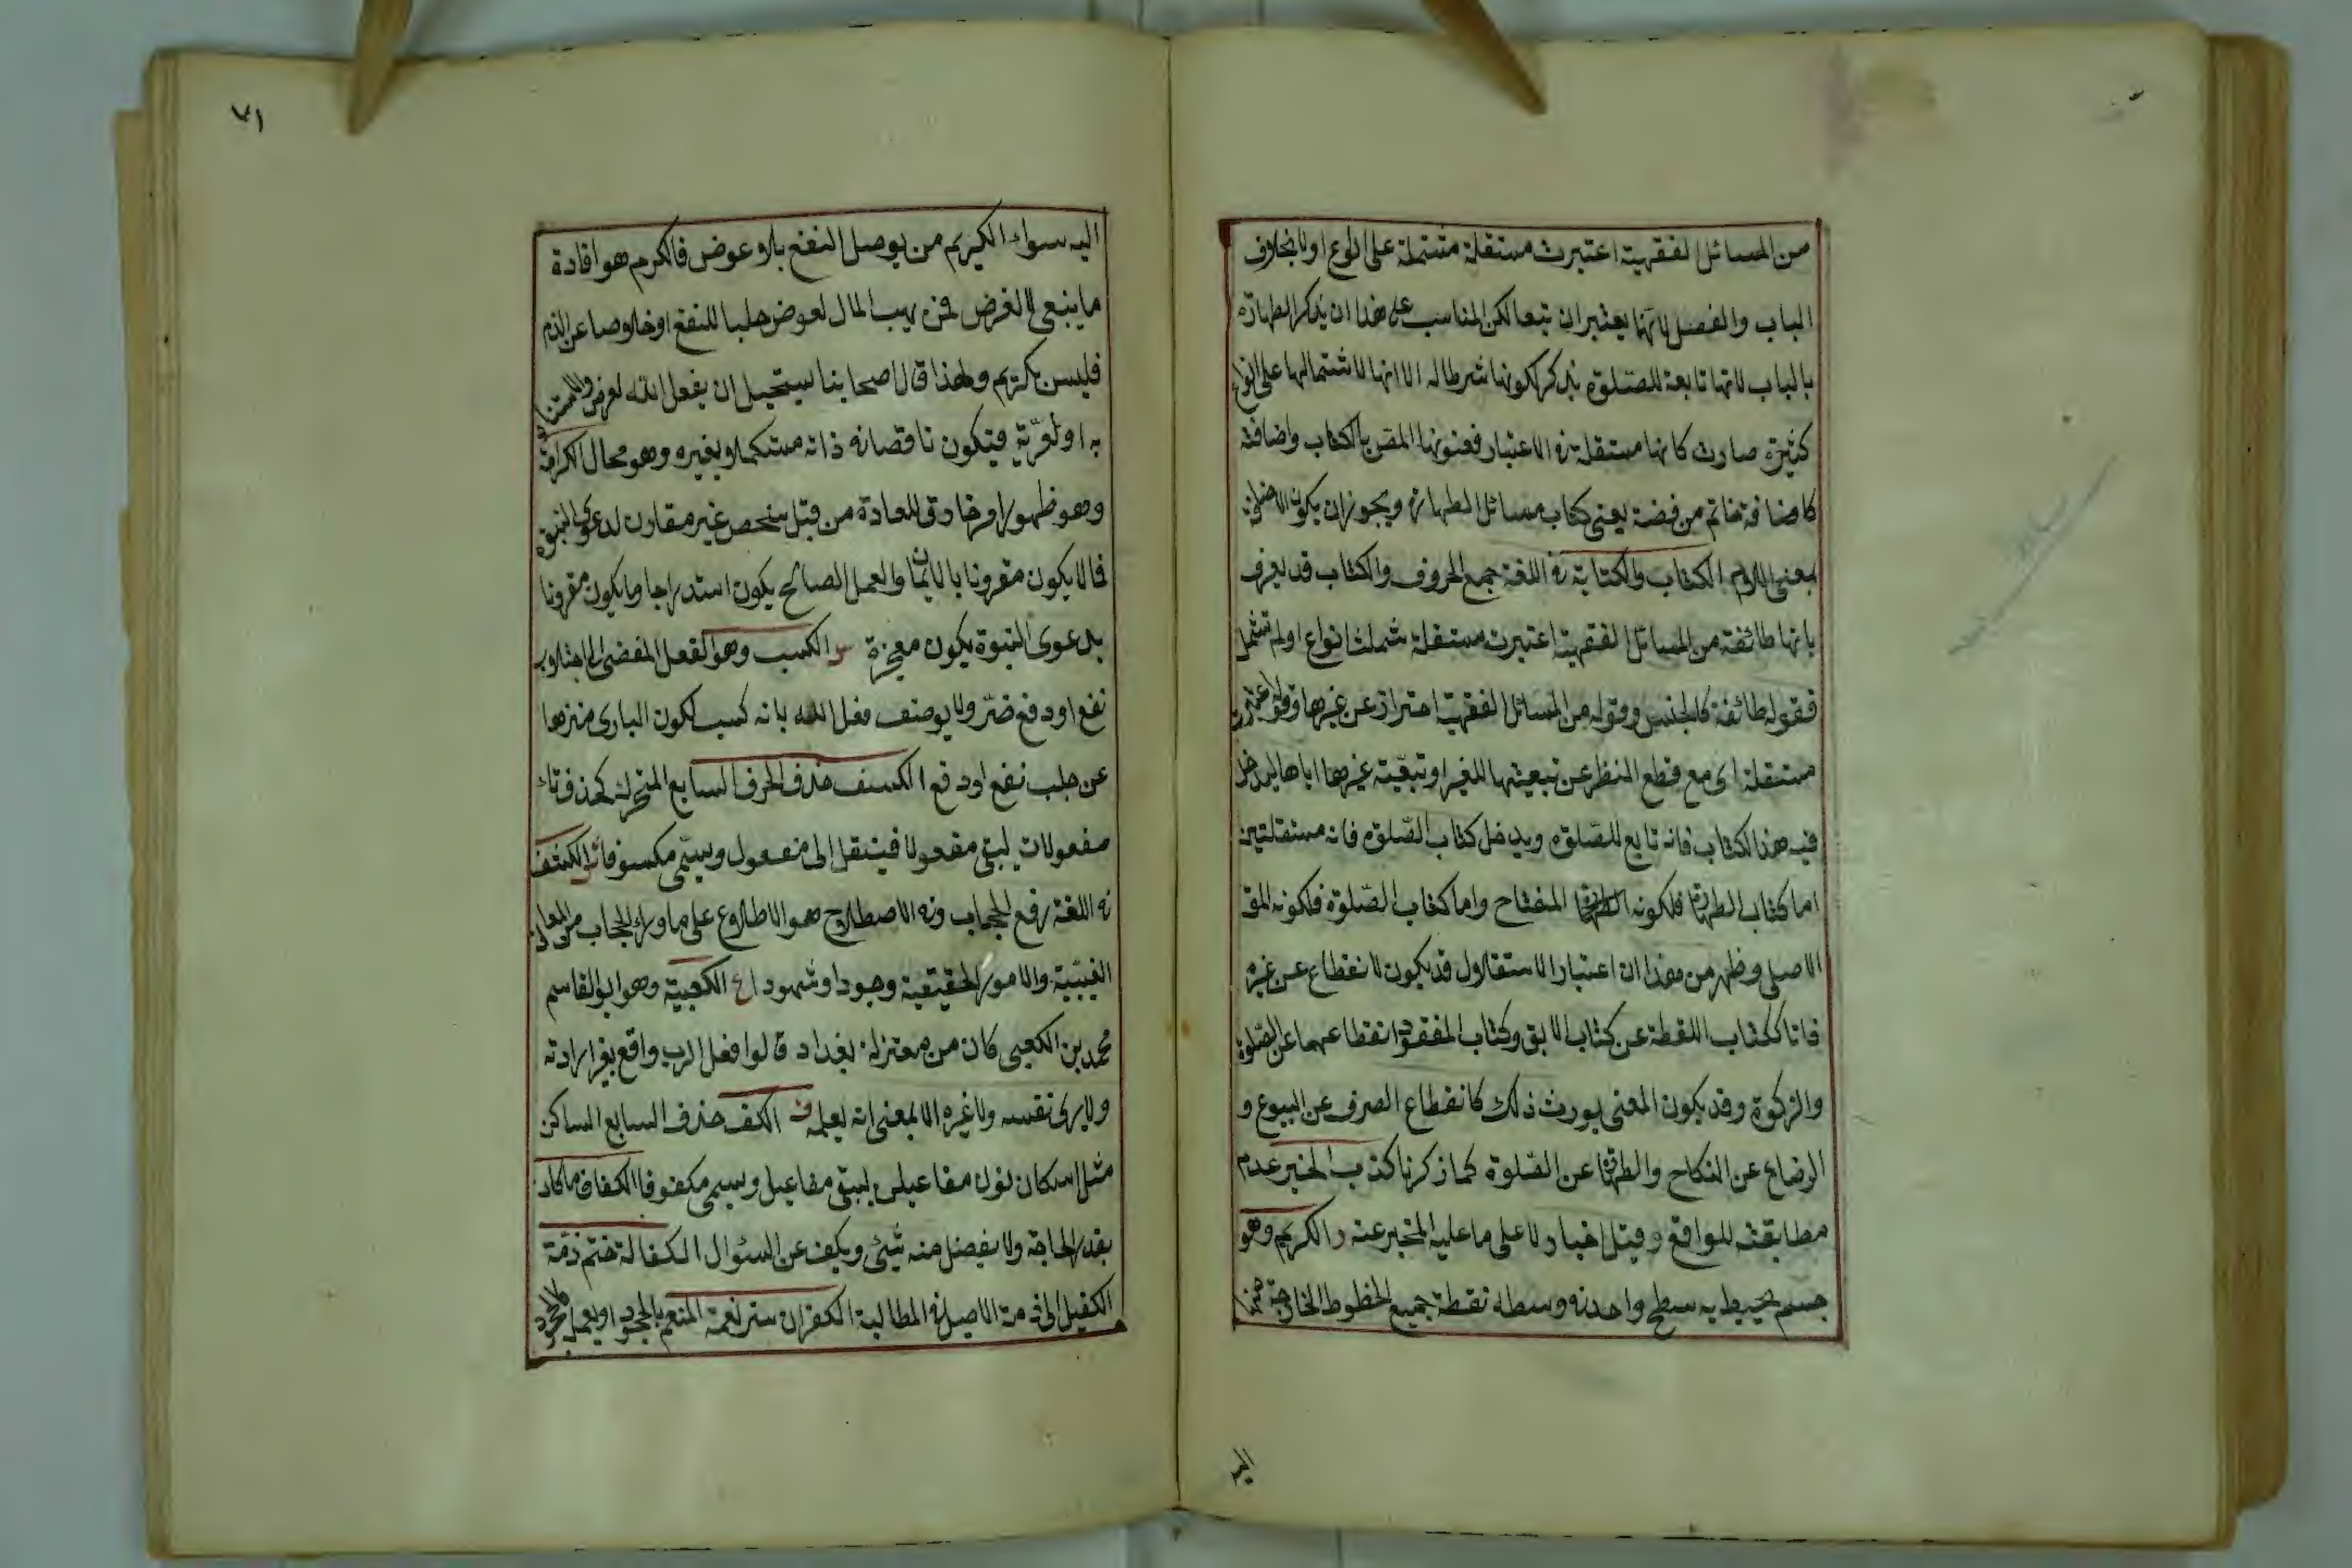 من المسائل الفقهية اعتبرت مستقلة مشتملة على انواع اولا بخلاف
الباب والفصل لانهما يعتبران تبعا لكن المناسب على هذا ان يذكر الطهارة
بالباب لانها تابعة للصلوة يذكر لكونها شرطا له الا انها لاشتمالها على انواع
كثيرة صارت كانها مستقلة فى الاعتبار فعنونها المص بالكتاب واضافته
كاضافة خاتم من فضة يعنى كتاب مسائل الطهارة ويجوز ان يكون الاضافة
بمعنى اللام الكتاب والكتابة فى اللغة جمع الحروف والكتاب قد يعرف
بانها طائفة من المسائل الفقهية اعتبرت مستقلة شملت انواع اولم تشمل
فقوله طائفة كالجنس وقوله من المسائل الفقهية احتراز عن غيرها وقوله اعتبرت
مستقلة اى مع قطع النظر عن تبعيتها للغير او تبعية غيرها اياها ليدخل
فيه هذا الكتاب فانه تابع للصلوة ويدخل كتاب الصلوة فانه مستقلتين
اما كتاب الطهارة فلكونه المفتاح واما كتاب الصلوة فلكونه المق
الاصلى وظهر من هذا ان اعتبار الاستقلال قد يكون لانقطاع عن غيره
ذاتا ككتاب اللقطة عن كتاب الابق وكتاب المفقود انقطاعهما عن الصلوة
والزكوة وقد يكون المعنى يورث ذلك كانقطاع الصرف عن البيوع و
الرضاع عن النكاح والطهارة عن الصلوة كما ذكرنا كذب الخبر عدم
مطابقته للواقع وقيل اخبار لا على ما عليه المخبر عنه ر الكريم وهو
جسم يحيط به سطح واحد فى وسطه نقطة جميع الخطوط الخارجة منها
اليه
٧١
اليه سواء الكريم من يوصل النفع بلا عوض فالكرم هو افادة
ما ينبغى لا لغرض فمن يهب المال لعوض جلبا للنفع او خلاصا عن الذم
فليس بكريم ولهذا قال اصحابنا يستحيل ان يفعل الله لغرض والا استفاد
به اولوية فيكون ناقصا فى ذاته مستكملا بغيره وهو محال الكرامة
وهو ظهور امر خارق للعادة من قبل شخص غير مقارن لدعوى النبوة
فما لا يكون مقرونا بالايمان والعمل الصالح يكون استدراجا وما يكون مقرونا
بدعوى النبوة يكون معجزة س الكسب وهو الفعل المفضى الى اجتلاب
نفع او دفع ضر ولا يوصف فعل الله بانه كسب لكون البارى منزها
عن جلب نفع او دفع الكسف حذف الحرف السابع المتحرك كحذف تاء
مفعولات ليبقى مفعولا فينتقل الى مفعول ويسمى مكسوفا ش الكشف
فى اللغة رفع الحجاب وفى الاصطلاح هو الاطلاع على ما وراء الحجاب من المعانى
الغيبية والامور الحقيقية وجودا وشهودا ع الكعبية وهو ابو القاسم
محمد بن الكعبى كان من معتزلة بغداد قالوا فعل الرب واقع بغير ارادته
ولا يرى نفسه ولا غيره الا بمعنى انه يعلمه ف الكف حذف السابع الساكن
مثل اسكان نون مفاعيلن ليبقى مفاعيل ويسمى مكفوفا الكفاف ما كان
بقدر الحاجة ولا يفضل منه شئ ويكف عن السئوال الكفالة ضم ذمة
الكفيل الى ذمة الاصيل فى المطالبة الكفران ستر نعمة المنعم بالجحود او بعمل كالجحود